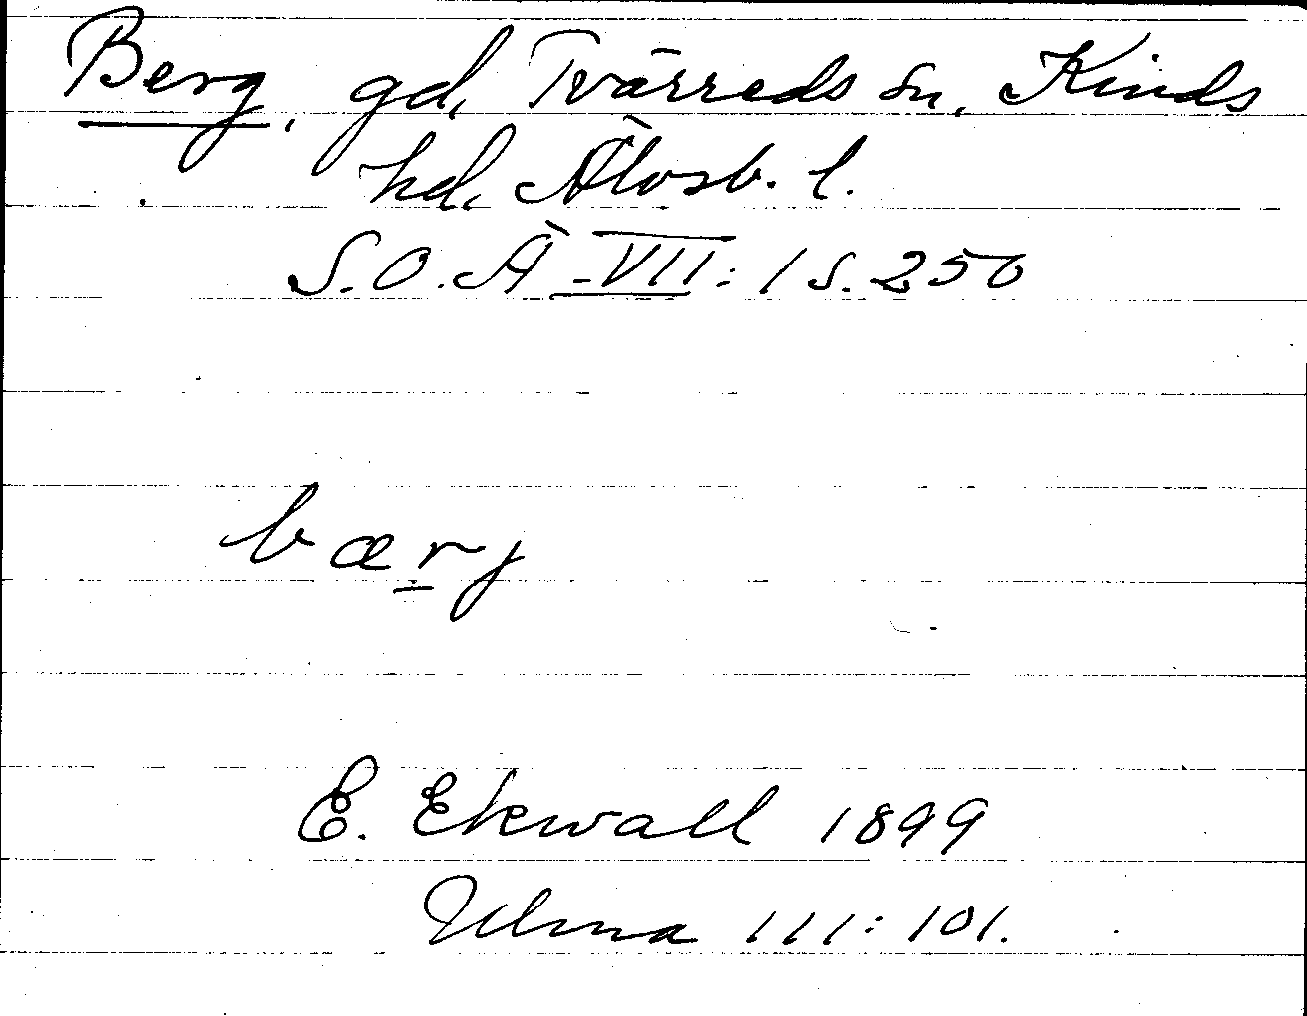 Berg, gd, Tvärreds sn, Kinds
hd, Älvsb. l.
S.O.Ä VII:1 s. 250
bærj
E. Ekwall 1899
Ulma 111:101.